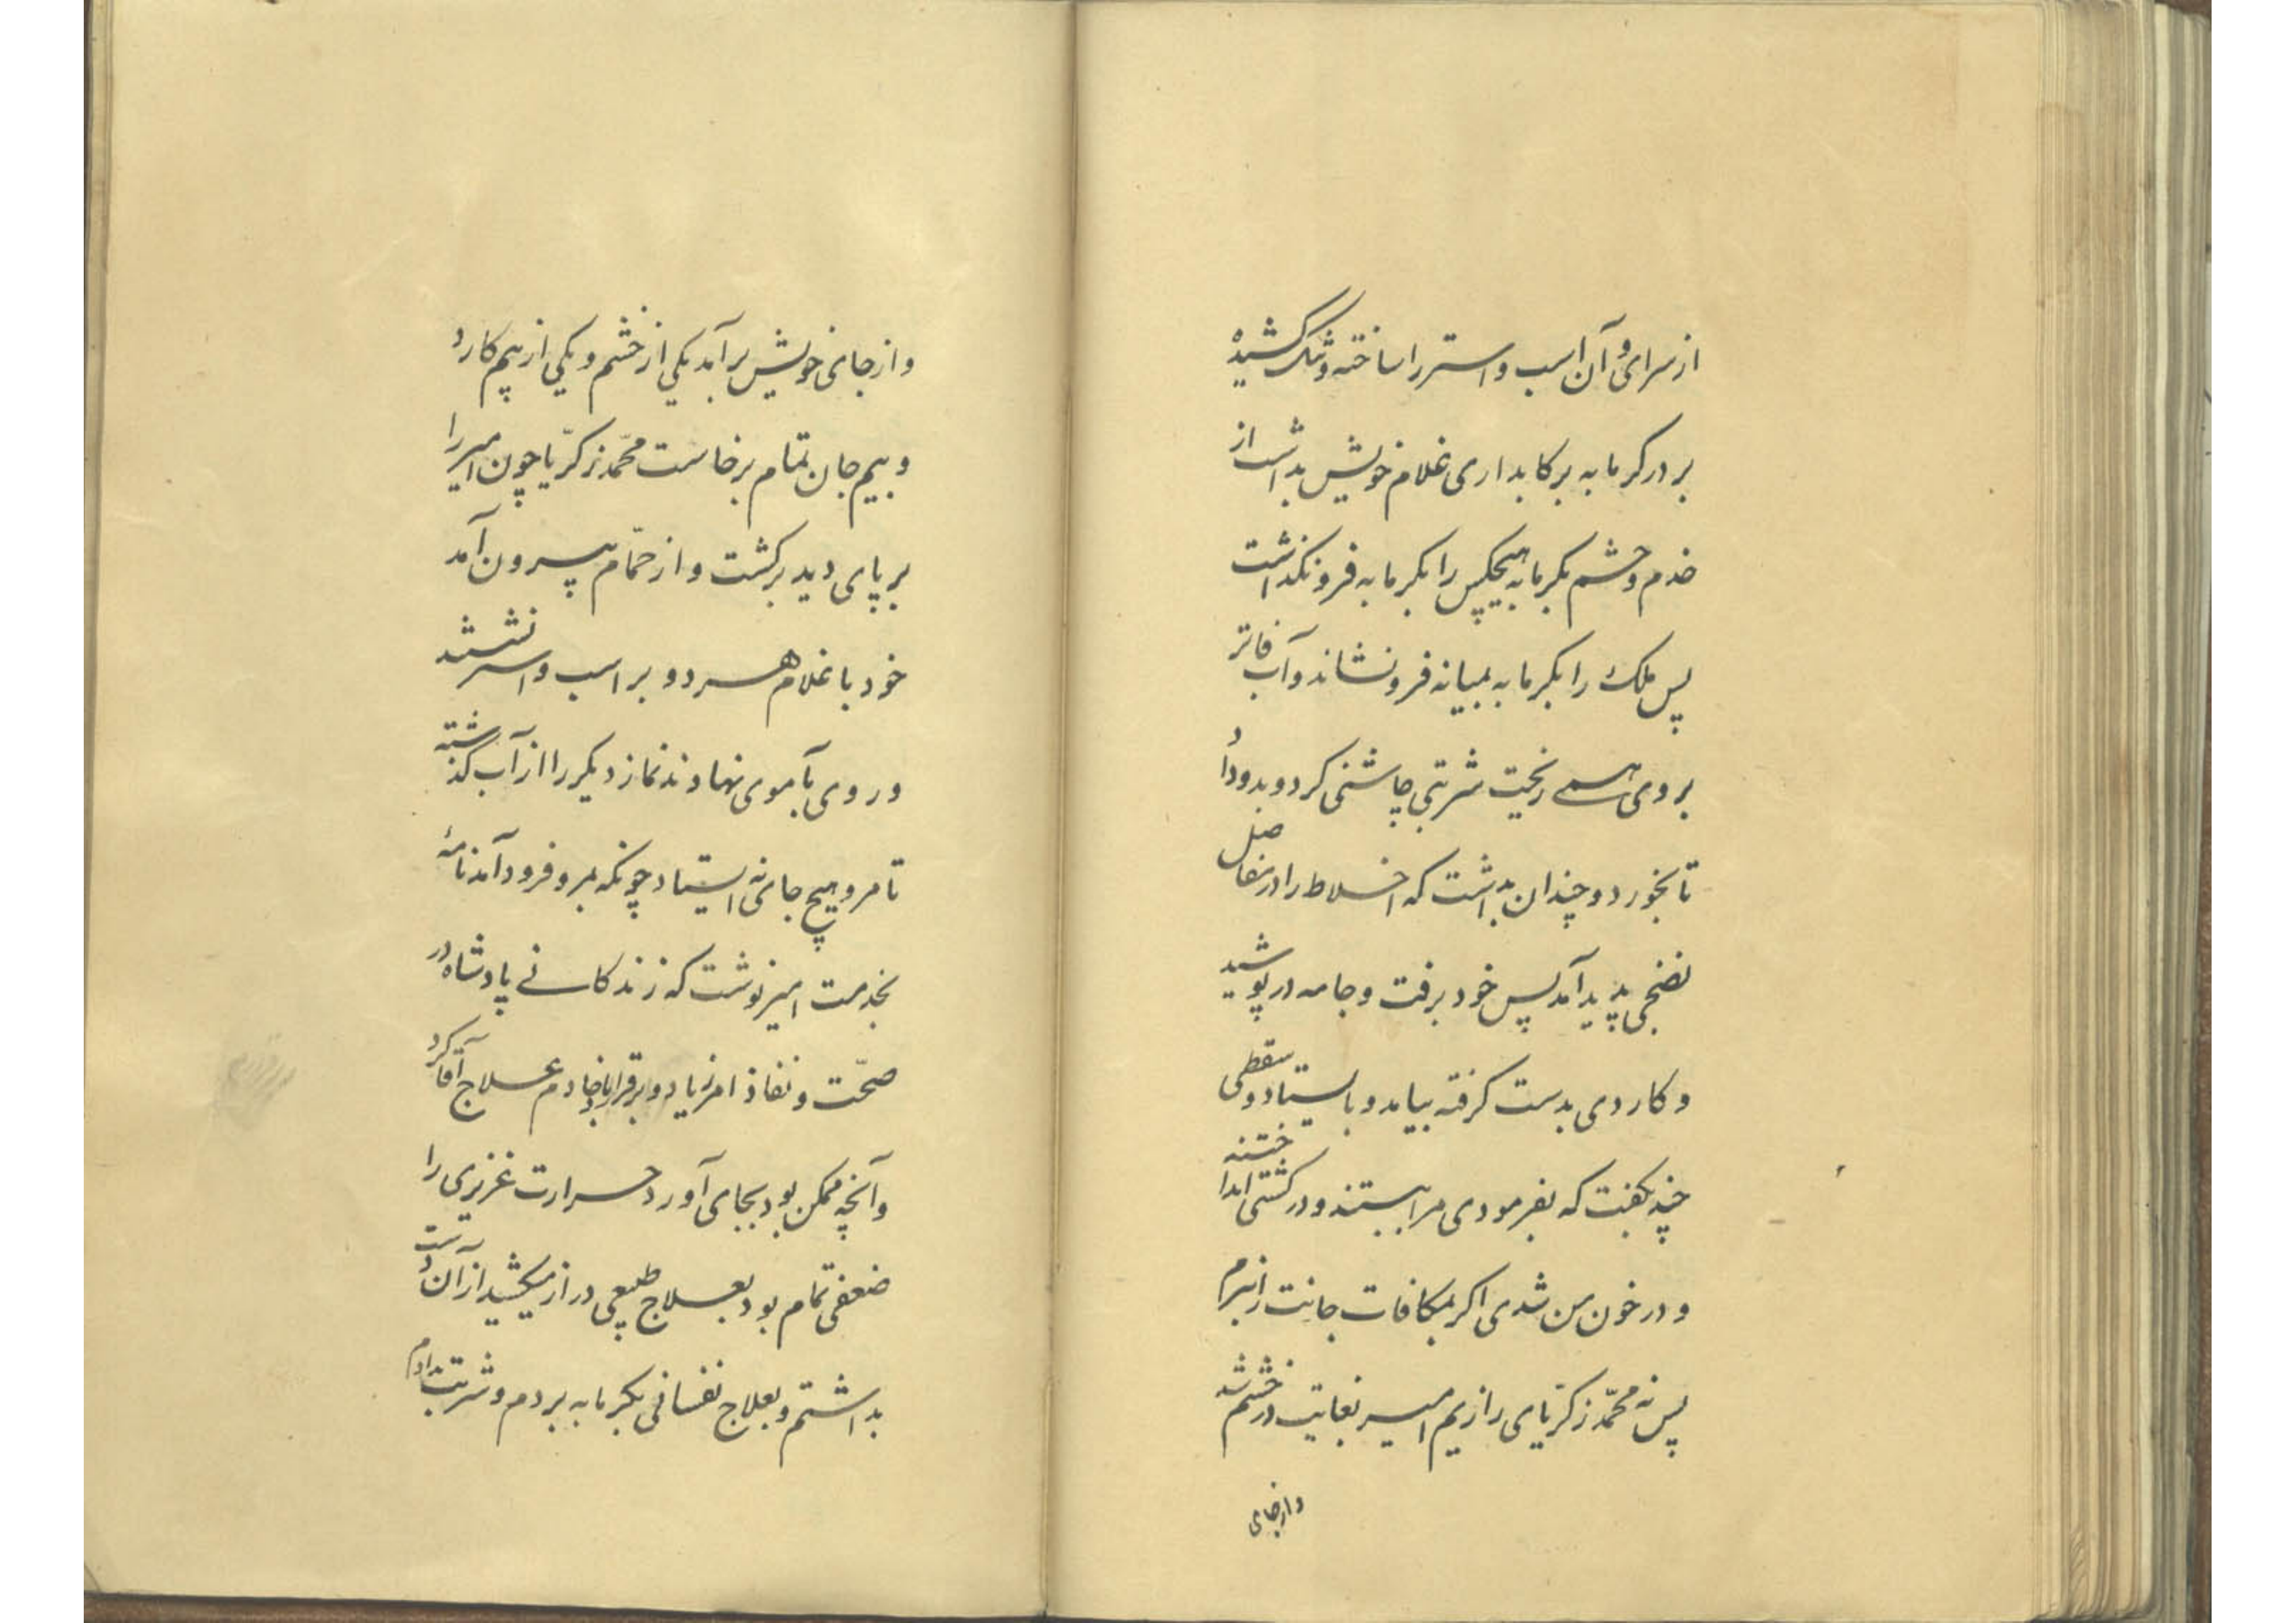 از سرای و آن اسب و استر را ساخته و تنگ کشیده
بر در کرمابه برکابداری غلام خویش بداشت از
خدم و حشم بکرمابه هیچکس را بکرمابه فرونکذاشت
پس ملک را بکرمابه بمیانه فرو نشاند و آب فاتر
بر وی همی ریخت شربتی چاشنی کرد و بدو داد
تا بخورد و چندان بداشت که اخلاط را در مفاصل
نضجی پدید آمد پس خود برفت و جامه در پوشید
و کاردی بدست کرفته بیامد و بایستاد و سقطی
چند بکفت که بفرمودی مرا ببستند و در کشتی انداختند
و در خون من شدی اکر بمکافات جانت را نبرم
پس نه محمّد زکرّیای رازیم امیر بغایت در خشم شد
و از جای
و از جای خویش برآمد یکی از خشم و یکی از بیم کارد
و بیم جان تمام برخاست محمّد زکرّیا چون امیر را
بر پای دید برکشت و از حمّام بیرون آمد
خود با غلام هر دو بر اسب و استر نشستند
و روی بآموی نهادند نماز دیکر را از آب کذشته
تا مرو هیچ جای نه ایستاد چونکه بمرو فرود آمد نامهٔ
بخدمت امیر نوشت که زندکانی پادشاه در
صحّت و نفاذ امر زیاد و برقرار باد خادم علاج آقا کرد
و آنچه ممکن بود بجای آورد حرارت غریزی را
ضعفی تمام بود بعلاج طبیعی دراز میکشید از آن دست
بداشتم و بعلاج نفسانی بکرمابه بردم و شربت بدادم